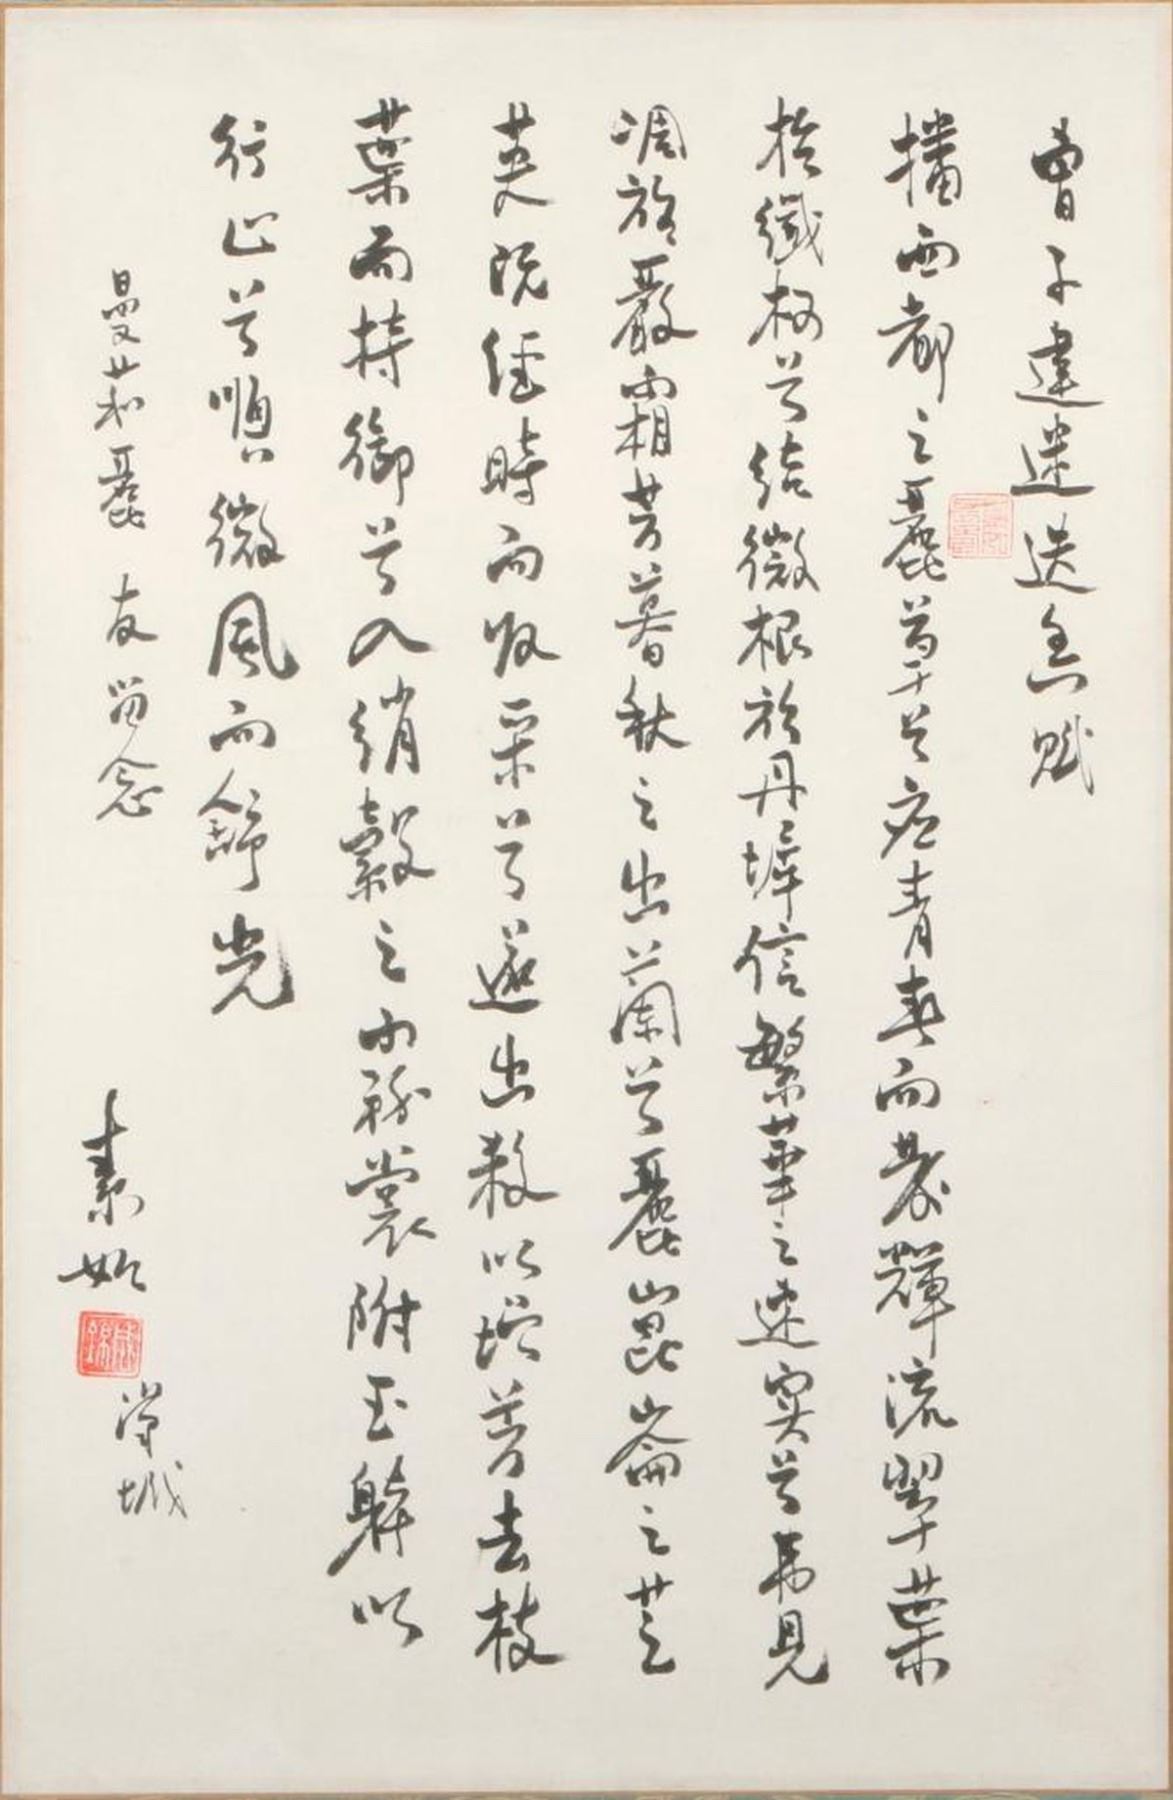 曹子建迷迭香賦
播西都之麗草兮應青春而發輝流翠葉
於纖柯兮結微根於丹墀信繁華之速實兮弗見
凋於嚴霜芳暮秋之幽蘭兮麗崑崙之芝
英既經時而收采兮遂幽殺以增芳去枝
葉而持御兮入綃縠之霧裳附玉躰以
行止兮順微風而舒光
曼麗友留念
素如